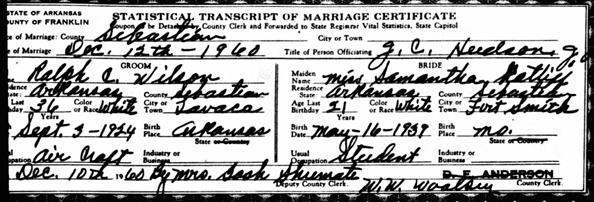 STATE OF ARKANSAS
COUNTY OF FRANKLIN
STATISTICAL TRANSCRIPT OF MARRIAGE CERTIFICATE
Coupon to be Detached by County Clerk and Forwarded to State Registrar Vital Statistics, State Capitol
ce of Marriage: County Sebastian City or Town
e of Marriage Dec. 12th - 1960 Title of Person Officiating J.C. Hudson, J.
GROOM BRIDE
Ralph C. Wilson Maiden Name Miss Samantha
esidence State: Arkansas County Sebastian Residence State: Arkansas County Sebastian
Last Birthday 36 Years Color or Race White City or Town Lavaca Age Last Birthday 21 Color or Race White City or Town Fort Smith
Sept. 3 - 1924 Birth Place Arkansas State or County Birth Date May - 16 - 1939 Birth Place Mo. State or County
ual
cupation Air Craft Industry or Business Usual Occupation Student Industry or Business
Dec. 10th 1960 By Mrs. Shumate Deputy County Clerk. D. E. ANDERSON County Clerk.
W.W.